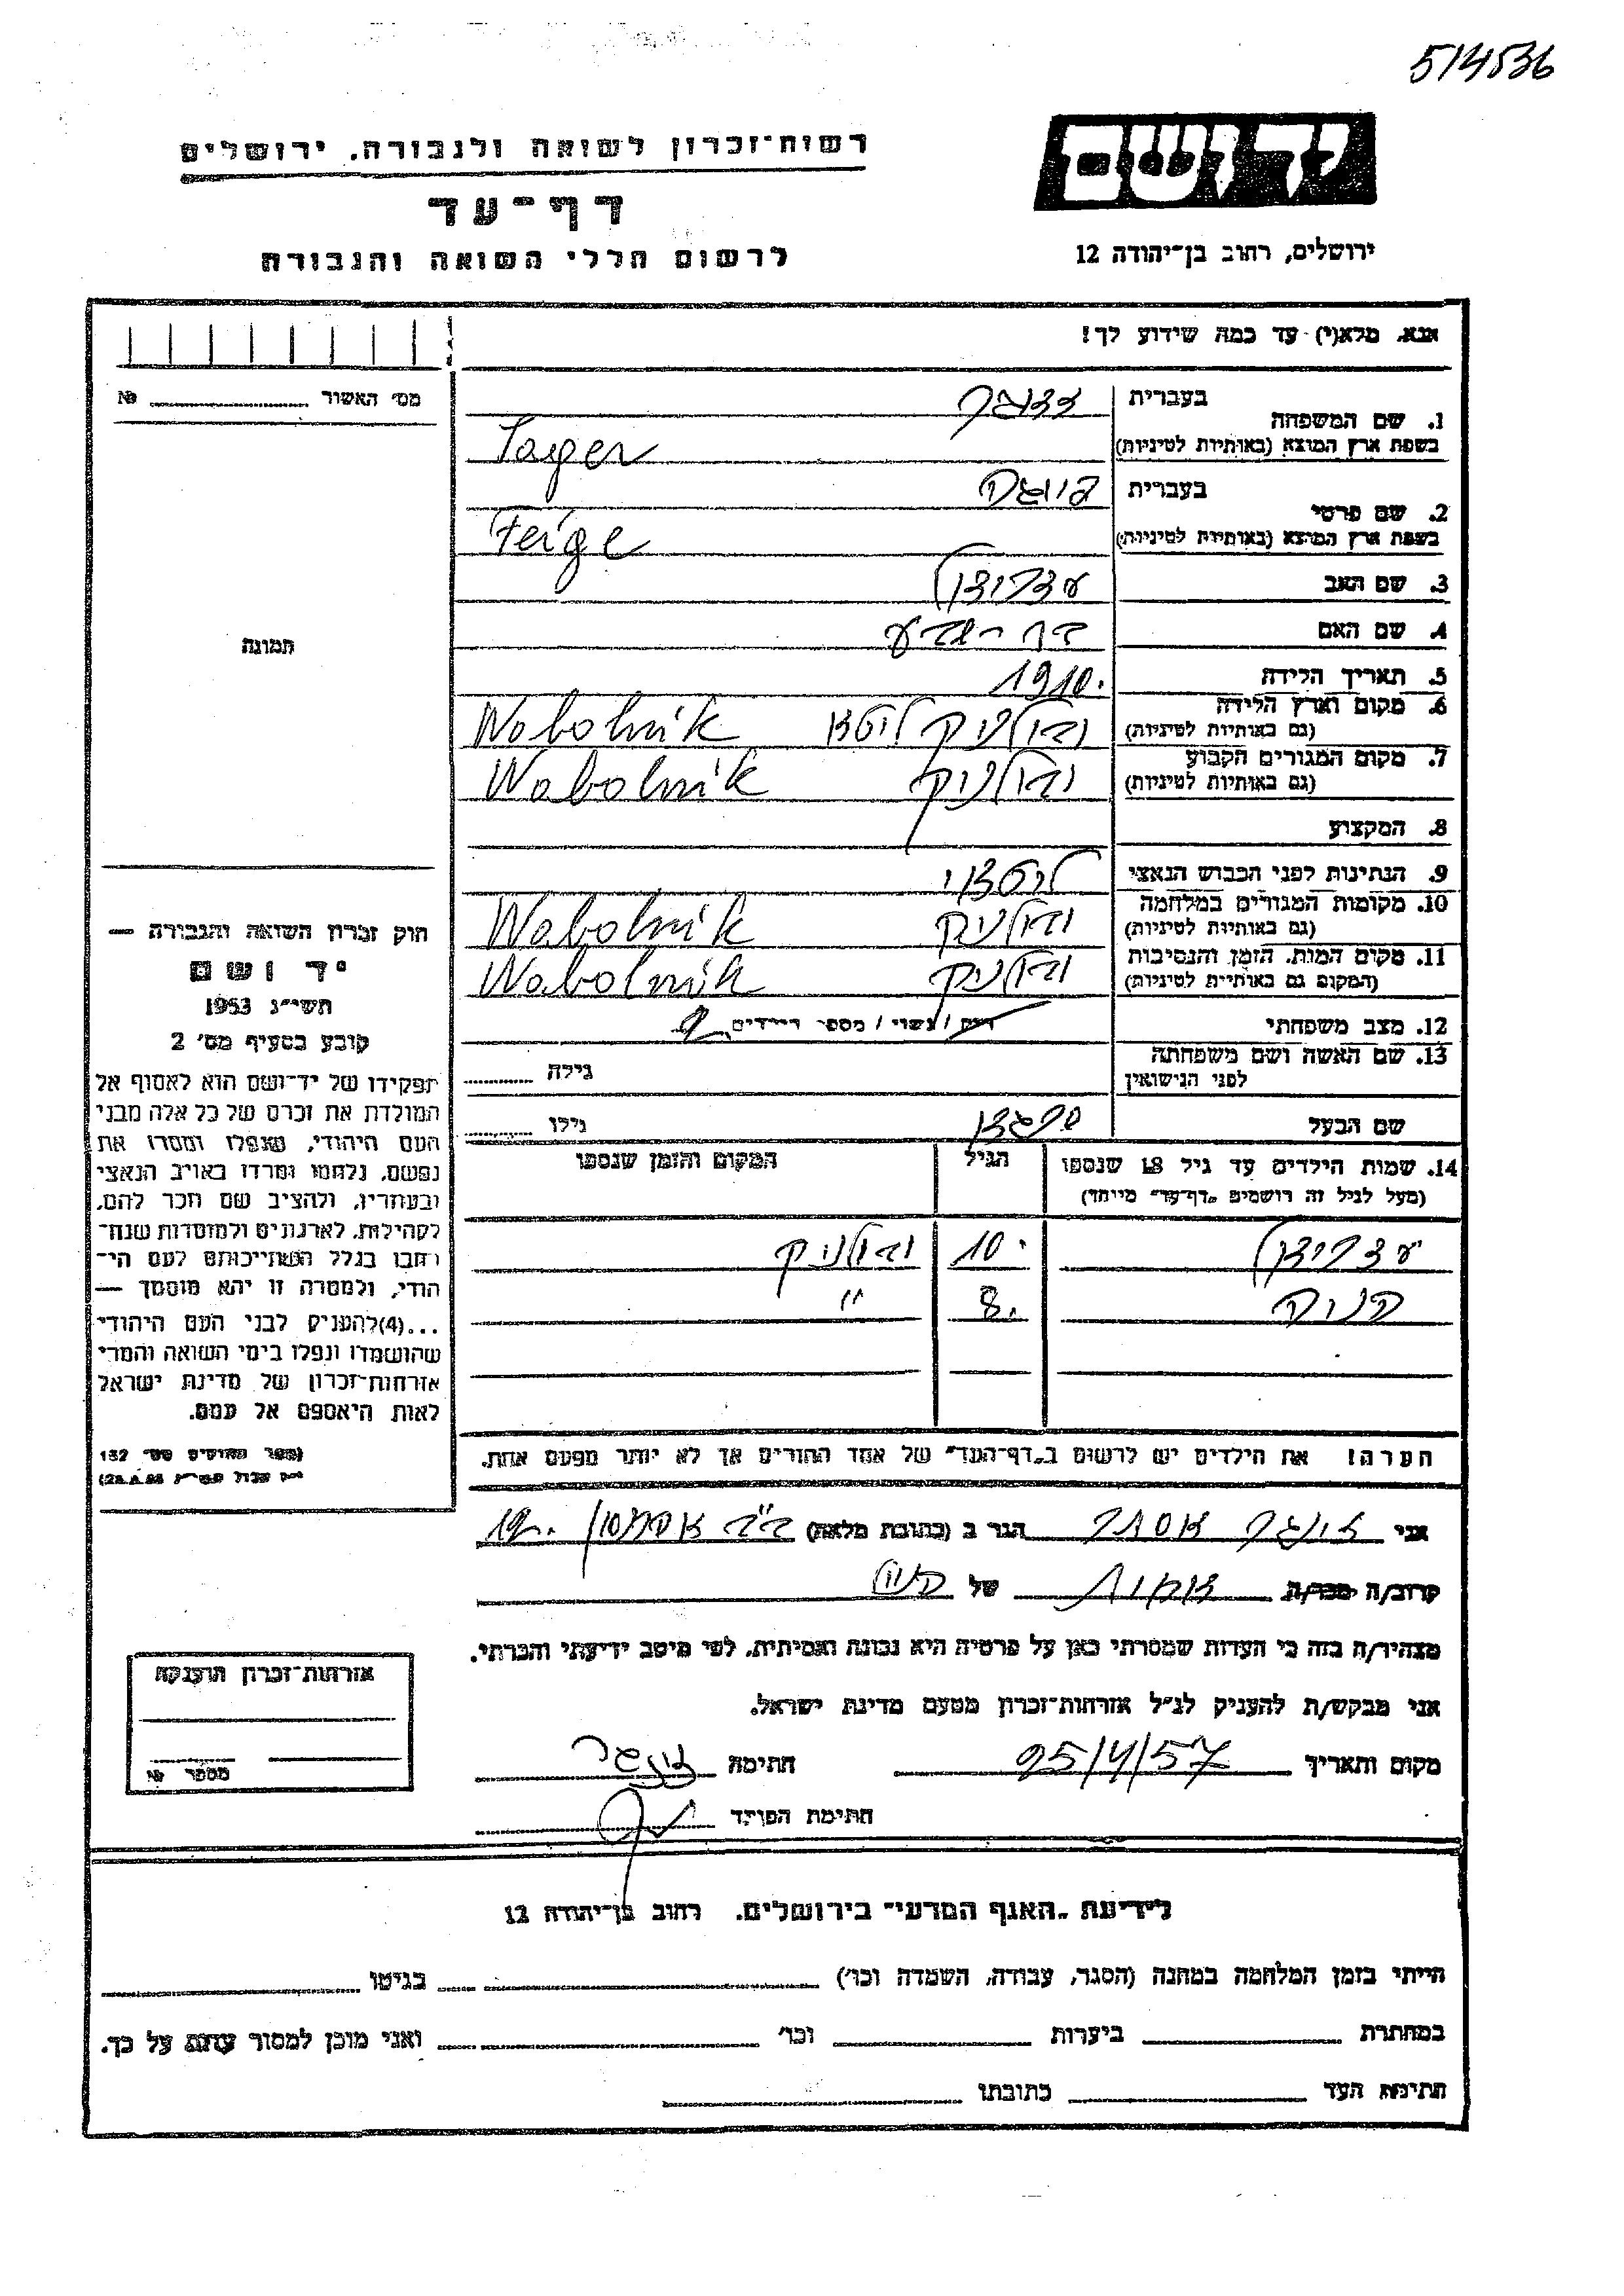 514536
יד ושם
רשות־זכרון לשואה ולגבורה. ירושלים
דף־עד
לרשום חללי השואה והגבורה
ירושלים, רחוב בן־יהודה 12
אנא. מלא(י) עד כמה שידוע לך!
מס׳ האשור № 
1. שם המשפחה
בעברית
בשפת ארץ המוצא (באותיות לטיניות)
2. שם פרטי
בעברית
בשפת ארץ המוצא (באותיות לטיניות) Feige
3. שם האב
4. שם האם
5. תאריך הלידה 1910.
6. מקום וארץ הלידה
(גם באותיות לטיניות) ובולניק ליטא Wabolnik
7. מקום המגורים הקבוע
(גם באותיות לטיניות) ובולניק Wabolnik
8. המקצוע
9. הנתינות לפני הכבוש הנאצי ליטאי
10. מקומות המגורים במלחמה
(גם באותיות לטיניות) ובולניק Wabolnik
11. מקום המות. הזמן והנסיבות
(המקום גם באותיות לטיניות) ובולניק Wabolnik
12. מצב משפחתי רווק / נשוי / מספר הילדים 2
13. שם האשה ושם משפחתה
לפני הנישואין גילה
שם הבעל גילו
14. שמות הילדים עד גיל 18 שנספו
(מעל לגיל זה רושמים „דף־עד״ מיוחד)
הגיל
המקום והזמן שנספו
10. ובולניק
8. "
תמונה
חוק זכרון השואה והגבורה —
יד ושם
תשי״ג 1953
קובע בסעיף מס׳ 2
תפקידו של יד־ושם הוא לאסוף אל
המולדת את זכרם של כל אלה מבני
העם היהודי, שנפלו ומסרו את
נפשם, נלחמו ומרדו באויב הנאצי
ובעוזריו, ולהציב שם וזכר להם,
לקהילות, לארגונים ולמוסדות שנח־
רבו בגלל השתייכותם לעם הי־
הודי, ולמטרה זו יהא מוסמך —
...(4) להעניק לבני העם היהודי
שהושמדו ונפלו בימי השואה והמרי
אזרחות־זכרון של מדינת ישראל
לאות היאספם אל עמם.
(ספר החוקים מס׳ 132
הערה! את הילדים יש לרשום ב„דף־העד״ של אחד ההורים אך לא יותר מפעם אחת.
אני אסתר הגר ב (כתובת מלאה) 12.
קרוב/ה מכר/ה של
מצהיר/ה בזה כי העדות שמסרתי כאן על פרטיה היא נכונה ואמיתית. לפי מיטב ידיעתי והכרתי.
אני מבקש/ת להעניק לנ״ל אזרחות־זכרון מטעם מדינת ישראל.
מקום ותאריך 25/4/57 חתימה
חתימת הפוקד
אזרחות־זכרון הוענקה
מספר №
לידיעת „האגף המדעי״ בירושלים. רחוב בן־יהודה 12
הייתי בזמן המלחמה במחנה (הסגר, עבודה, השמדה וכו׳) בגיטו
במחתרת ביערות וכו׳ ואני מוכן למסור עדות על כך.
חתימת העד כתובתו